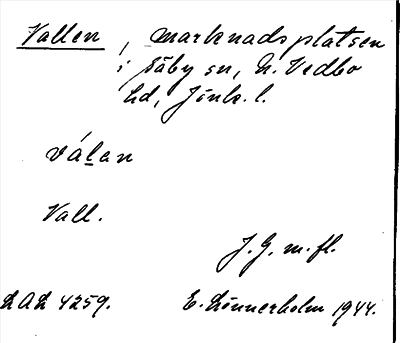 Vallen, marknadsplatsen
i Säby sn, N. Vedbo
hd, Jönk. l.
válan
Vall.
J. G. m. fl.
LAL 4259. E. Lönnerholm 1944.